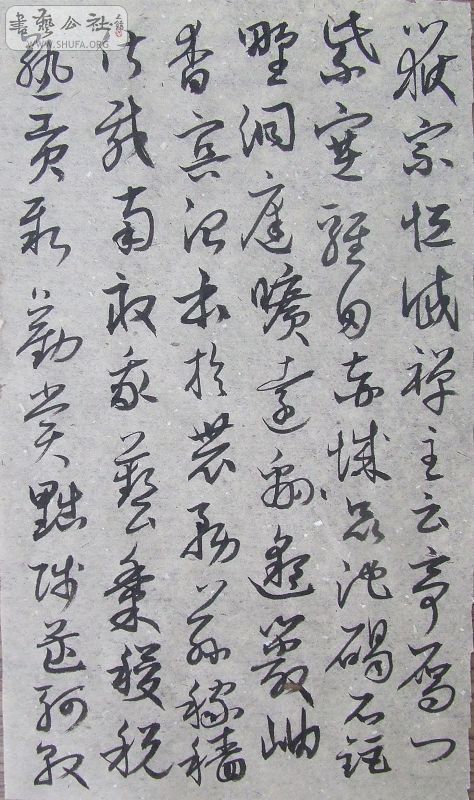 嶽宗恒岱禪主云亭雁門
紫塞雞田赤城昆池碣石鉅
野洞庭曠遠綿邈巖岫
杳冥治本於農務茲稼穡
俶載南畝我藝黍稷稅
熟貢新勸賞黜陟孟軻敦
書藝公社
WWW.SHUFA.ORG